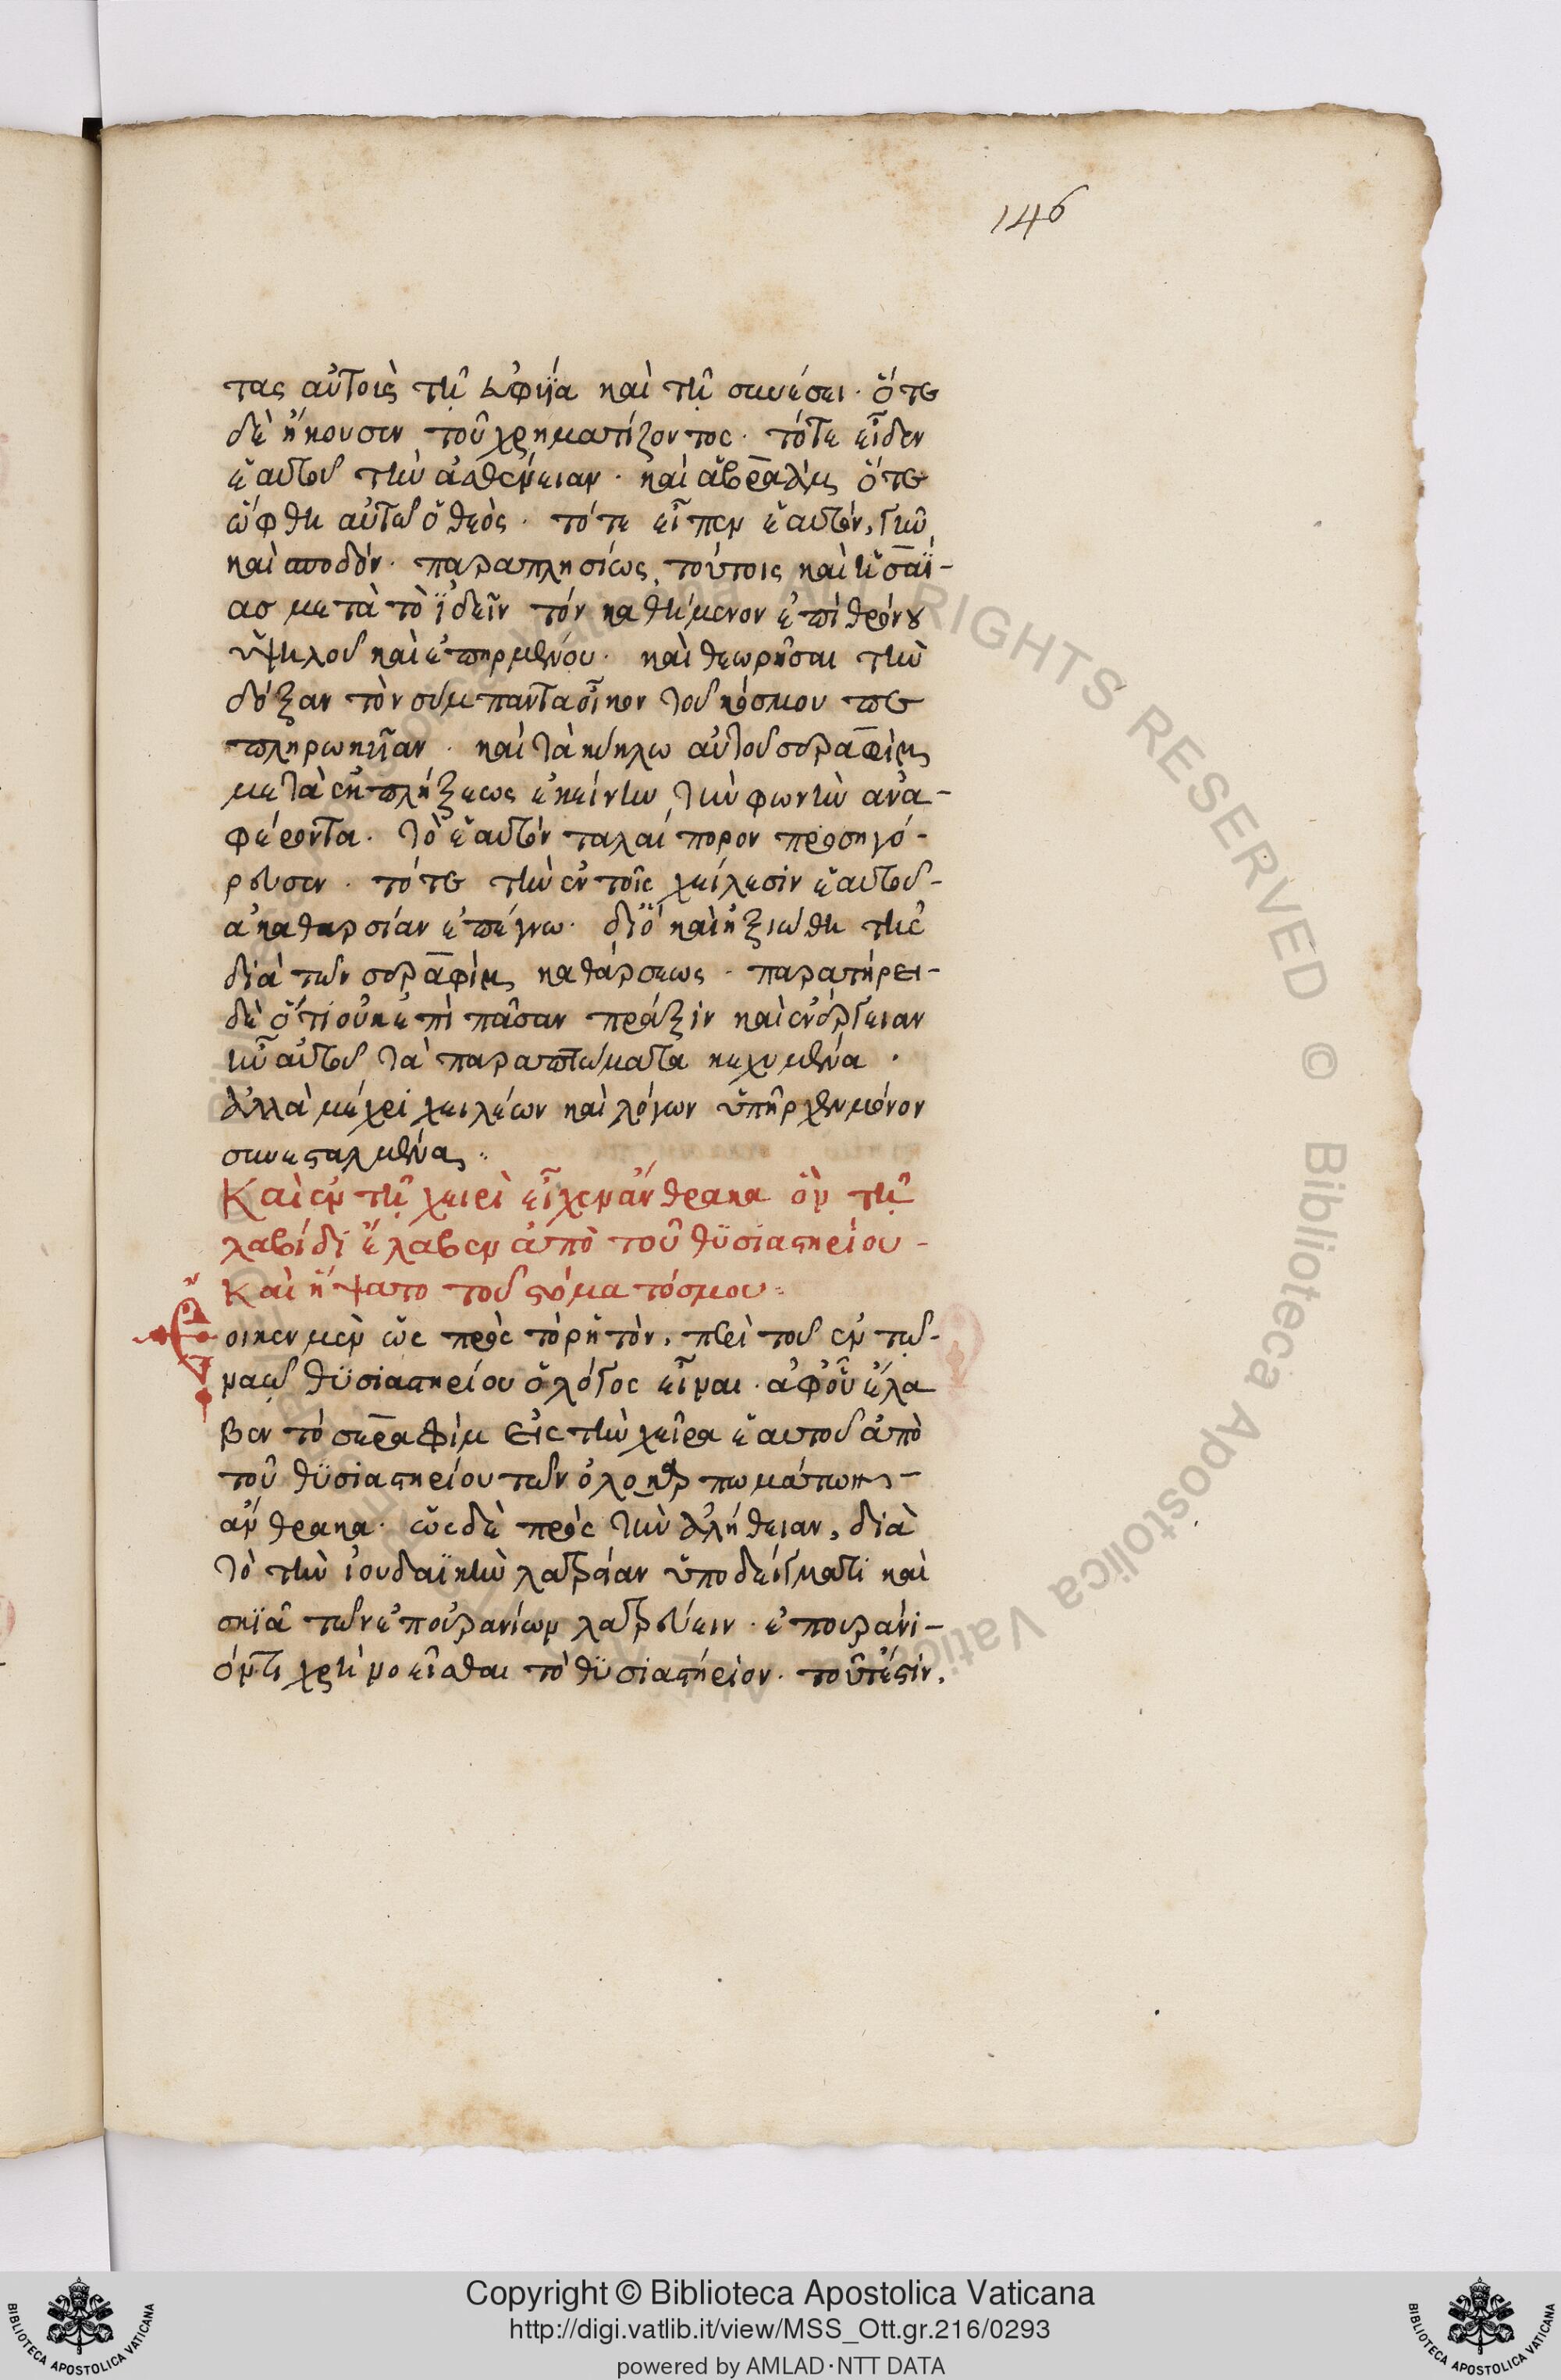 146
τας αὐτοὶς τῆ σοφΐα καὶ τῆ συνέσει· ὅτε
δὲ ἤκουσεν τοῦ χρηματίζοντος· τότε εἶδεν
ἑαυτοῦ τὴν ἀσθένειαν· καὶ ἀβραὰμ ὅτε
ὤφθη αὐτῶ ὁ θεὸς· τότε εἶπεν ἑαυτὸν, γῆν
καὶ σποδόν· παραπλησίως τούτοις καὶ ἡσαΐ-
ασ μετὰ τὸ ἰδεῖν τόν καθήμενον ἐπὶ θρόνου
ὑψηλοῦ καὶ ἐπηρμένου· καὶ θεωρῆσαι τὴν
δόξαν τὸν σύμπαντα οἶκον τοῦ κόσμου πε
πληρωκυῖαν· καὶ τὰ κύκλω αὐτοῦ σεραφὶμ
μετὰ ἐκπλήξεως ἐκείνην τὴν φωνὴν ἀνα-
φέροντα· τὸ ἑαυτὸν ταλαίπορον προσηγό-
ρευσεν· τότε τὴν ἐν τοῖς χείλεσιν ἑαυτοῦ-
ἀκαθαρσίαν ἐπέγνω· διὸ καὶ ἠξιώθη τῆς
διὰ τῶν σεραφὶμ καθάρσεως· παρατήρει-
δὲ ὅτι οὐκ ἐπὶ πᾶσαν πράξιν καὶ ἐνέργειαν
ἦν αὐτοῦ τὰ παραπτώματα κεχυμένα·
ἀλλὰ μέχρι χειλέων καὶ λόγων ὑπῆρχεν μόνον
συνεσταλμένα:
Καὶ ἐν τῆ χειρὶ εἶχεν ἄνθρακα ὃν τῆ
λαβίδι ἔλαβεν ἀπὸ τοῦ θϋσιαστηρίου-
Καὶ ἥψατο τοῦ στόματόσ μου:
Ἔοικεν μὲν ὡς πρὸς τὸ ρητὸν, περὶ τοῦ ἐν τῶ-
ναῶ θϋσιαστηρίου ὁ λόγος εἶναι· ἀφ' οὗ ἔλα
βεν τό σεραφὶμ εἰς τὴν χεῖρα ἑαυτοῦ ἀπὸ
τοῦ θϋσιαστηρίου τῶν ὁλοκαρπωμάτων-
ἄνθρακα· ὡς δὲ πρὸς τὴν ἀλήθειαν, διὰ
τὸ τὴν ἰουδαϊκὴν λατρείαν ὑποδείγματι καὶ
σκϊᾶ τῶν ἐπουρανίων λατρεύειν· ἐπουράνι-
όν τι χρὴ νοεῖσθαι τὸ θϋσιαστήριον· τοῦτέστιν,
Copyright © Biblioteca Apostolica Vaticana
http://digi.vatlib.it/view/MSS_Ott.gr.216/0293
powered by AMLAD·NTT DATA